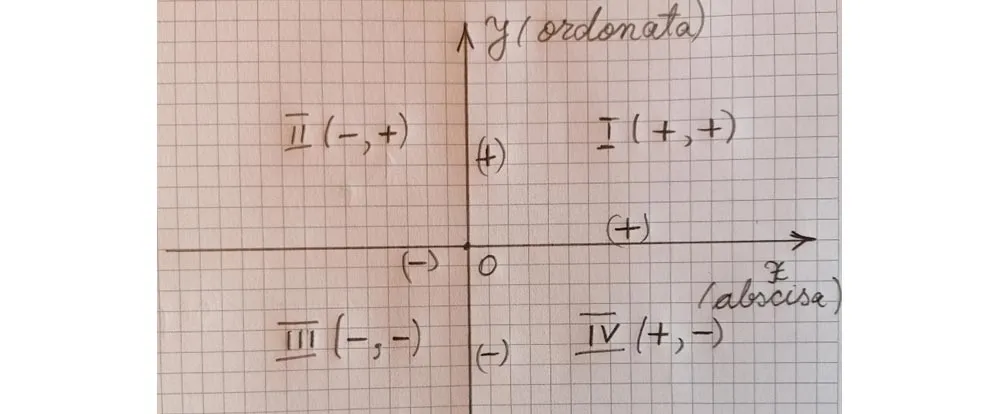 y (ordonata)
II (-,+)
I (+,+)
(+)
(+)
(-)
O
x
(abscisa)
III (-,-)
IV (+,-)
(-)